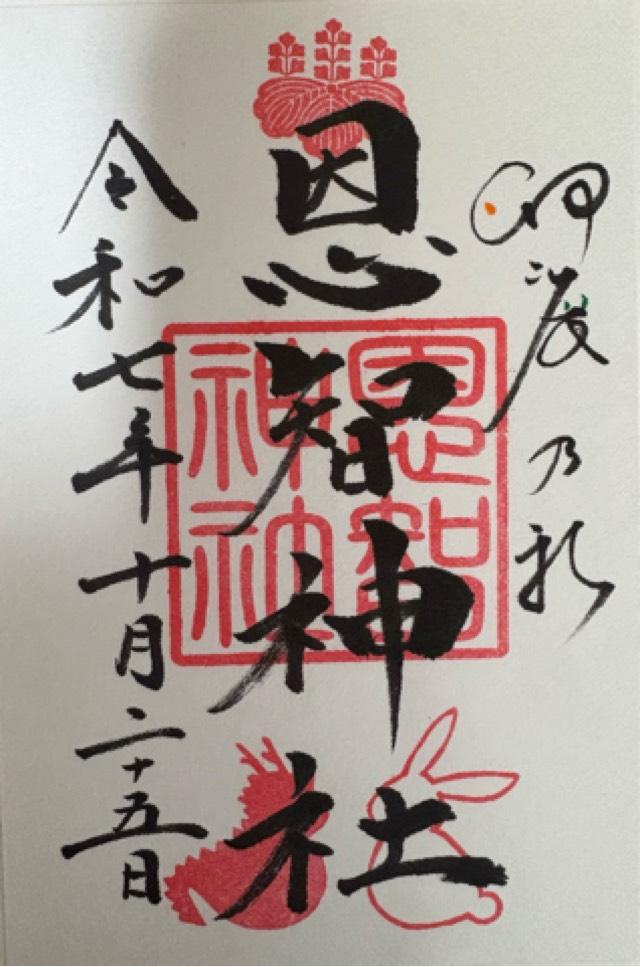 恩智神社
恩智
神社
令和七年十月二十五日